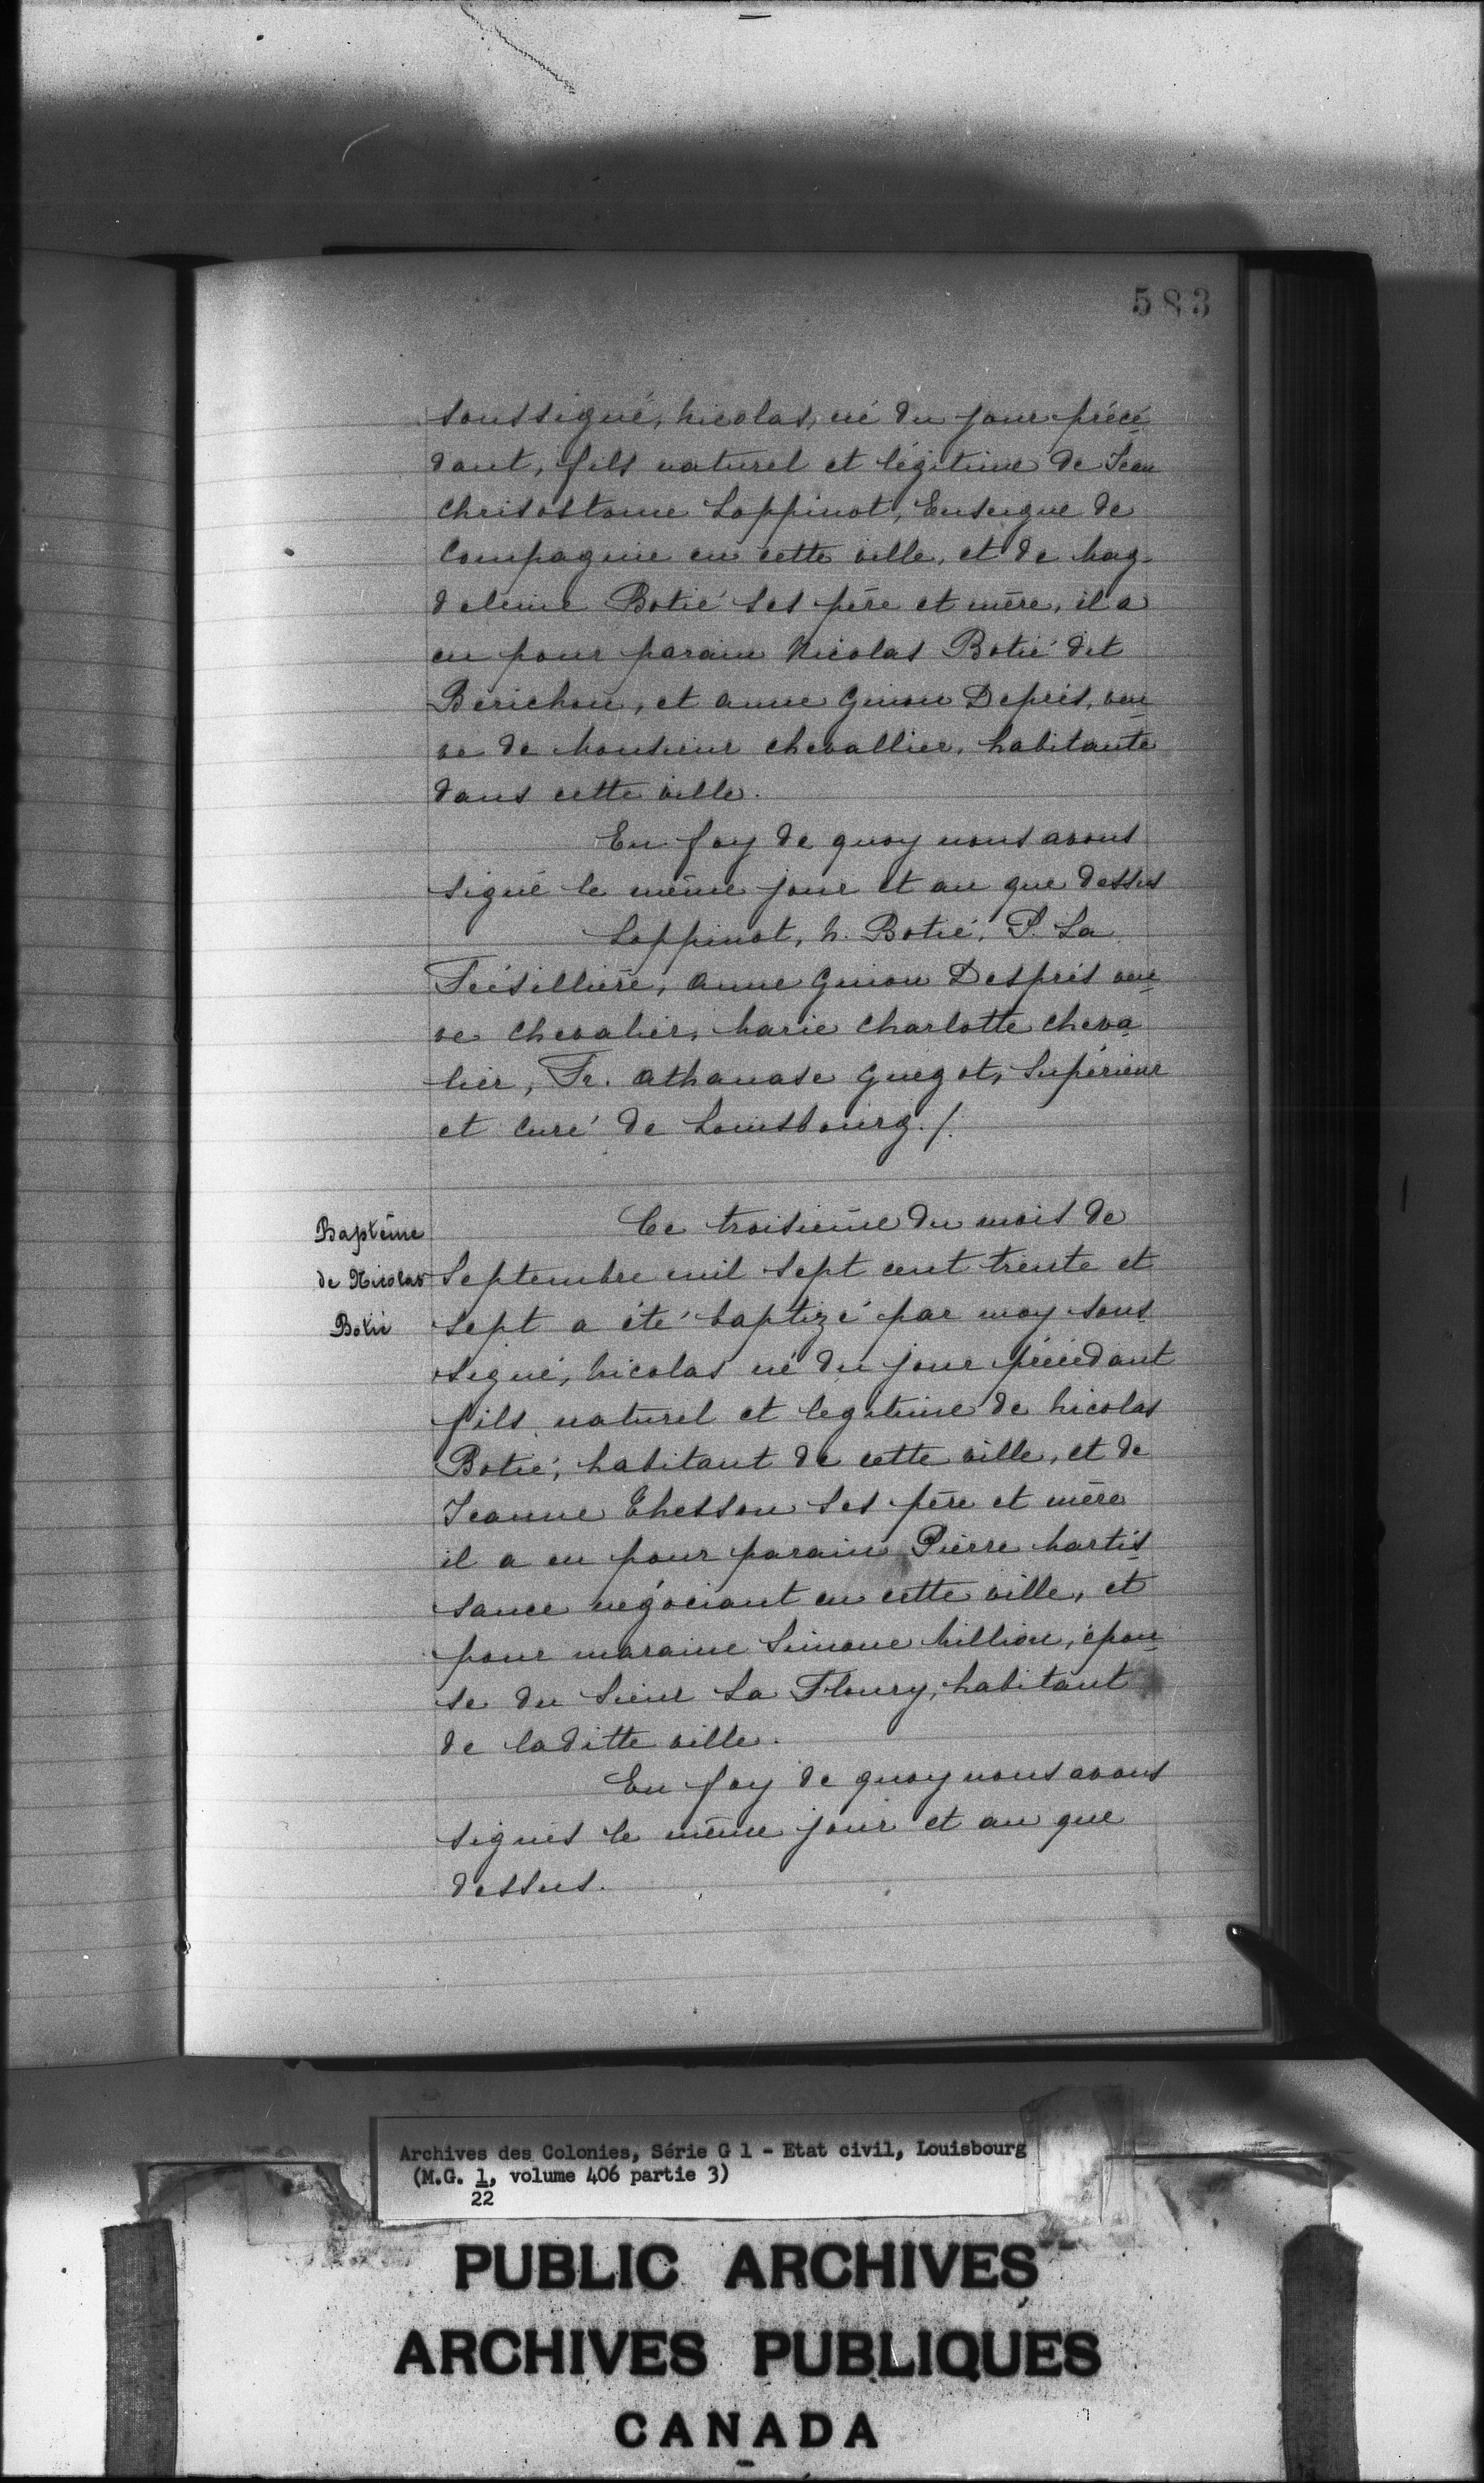 583
soussigné, Nicolas, né du jour précé
dant, fils naturel et légitime de Jean
Chrisostome Loppinot, Enseigne de
Compagnie en cette ville, et de Mag-
deleine Botié ses père et mère, il a
eu pour parain Nicolas Botié dit
Berichon, et anne Guion Deprés, veu
ve de Monsieur Chevallier, habitante
dans cette ville.
En foy de quoy nous avons
signé le même jour et an que dessus
Loppinot, N. Botié, P. La
Frésillière, Anne Guion Després veu
ve Chevalier, Marie Charlotte Cheva
lier, Fr. Athanase Guégot, Supérieur
et Curé de Louisbourg./.
Baptême
de Nicolas
Botié
Ce troisième du mois de
Septembre mil sept cent trente et
sept a été baptizé par moy sous
signé, Nicolas né du jour précédant
fils naturel et legitime de Nicolas
Botié, habitant de cette ville, et de
Jeanne Chesson ses père et mère
il a eu pour parain Pierre Martis
sance négociant en cette ville, et
pour maraine Simone Million, épou
se du Sieur La Floury, habitant
de laditte ville.
En foy de quoy nous avons
signés le même jour et an que
dessus.
Archives des Colonies, Série G 1 - Etat civil, Louisbourg
(M.G. 1, volume 406 partie 3)
22
PUBLIC ARCHIVES
ARCHIVES PUBLIQUES
CANADA